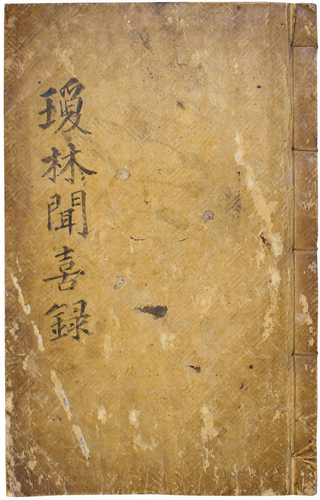 瓊林聞喜錄